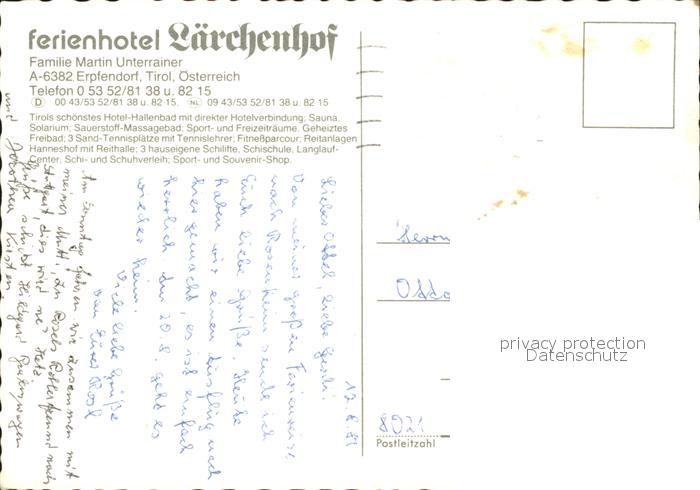 ferienhotel Lärchenhof
Familie Martin Unterrainer
A-6382 Erpfendorf, Tirol, Österreich
Telefon 0 53 52/81 38 u. 82 15
D 00 43/53 52/81 38 u. 82 15, NL 09 43/53 52/81 38 u. 82 15
Tirols schönstes Hotel-Hallenbad mit direkter Hotelverbindung; Sauna,
Solarium; Sauerstoff-Massagebad; Sport- und Freizeiträume. Geheiztes
Freibad; 3 Sand-Tennisplätze mit Tennislehrer; Fitneßparcour; Reitanlagen
Hanneshof mit Reithalle; 3 hauseigene Schilifte, Schischule, Langlauf-
Center, Schi- und Schuhverleih; Sport- und Souvenir-Shop.
12.8.81
Lieber Ottel, liebe Gerti.
Von meiner großen Ferienreise
nach Rosenheim sende ich
Euch liebe Grüße. Heute
haben wir einen Ausflug nach
hier gemacht, es ist einfach
herrlich. Am 20.8. geht es
wieder heim.
Viele liebe Grüße
von Eurer Rosl
Am Sonntag fahren wir zusammen mit
meiner Mutti, zu
Stuttgart, dies wird ne Hetz
Grüße schickt Hildgard
und Dorothea
Herrn
Otto
8021
Postleitzahl
privacy protection
Datenschutz